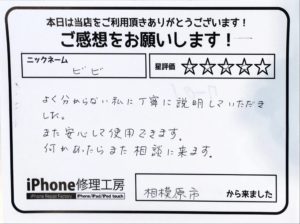 本日は当店をご利用頂きありがとうございます！
ご感想をお願いします！
ニックネーム
ビビ
星評価 ☆☆☆☆☆
よく分からない私に丁寧に説明していただき
ました。
また安心して使用できます。
何かあったらまた相談に来ます。
iPhone修理工房
iPhone Repair Factory iPhone/iPad/iPod touch
相模原市 から来ました